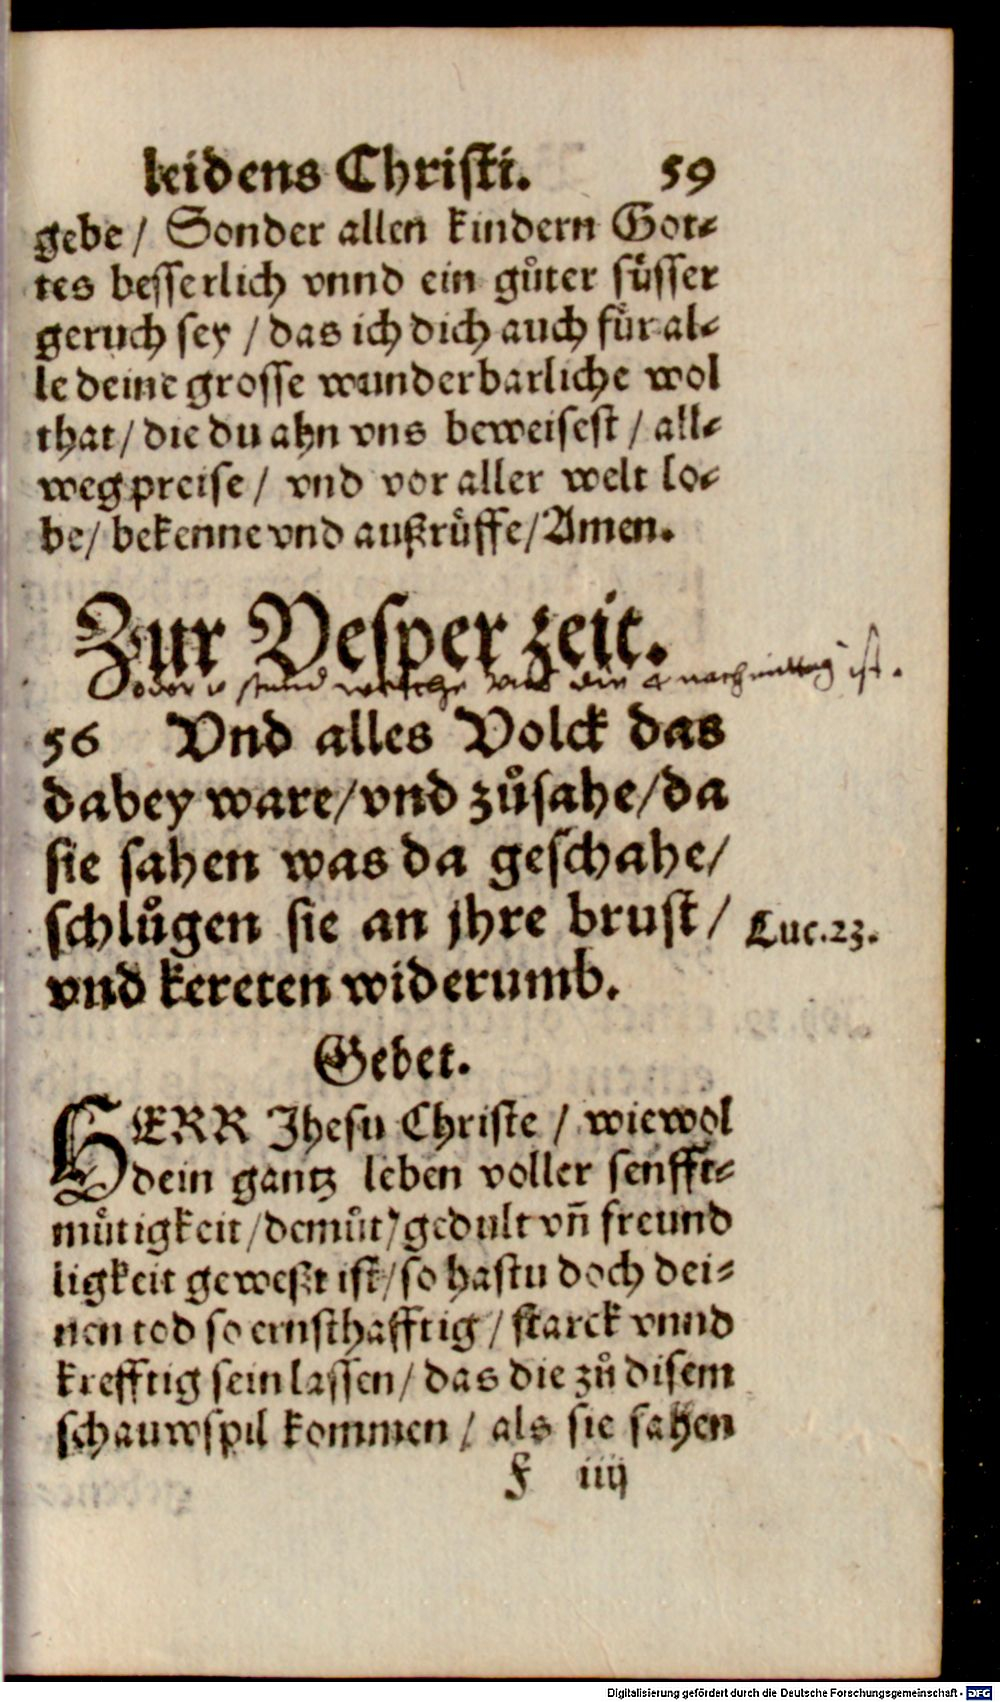 leidens Christi. 59
gebe / Sonder allen kindern Got⸗
tes besserlich vnnd ein gůter süsser
geruch sey / das ich dich auch für al⸗
le deine grosse wunderbarliche wol
that / die du ahn vns beweisest / all⸗
weg preise / vnd vor aller welt lo⸗
be / bekenne vnd außrüffe / Amen.
Zur Vesper zeit.
oder stund welche vmb die 4 nachmittag ist.
56 Vnd alles Volck das
dabey ware / vnd zůsahe / da
sie sahen was da geschahe /
schlůgen sie an jhre brust / Luc. 23.
vnd kereten widerumb.
Gebet.
HERR Jhesu Christe / wiewol
dein gantz leben voller senfft⸗
mütigkeit / demůt / gedult vñ freund
ligkeit geweßt ist / so hastu doch dei⸗
nen tod so ernsthafftig / starck vnnd
krefftig sein lassen / das die zů disem
schauwspil kommen / als sie sahen
F iiij
Digitalisierung gefördert durch die Deutsche Forschungsgemeinschaft - DFG